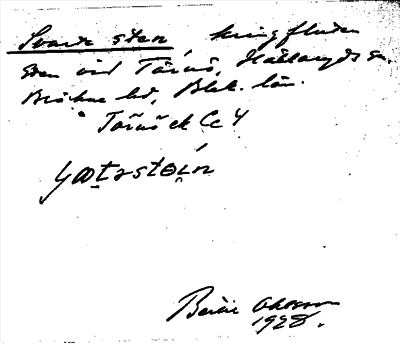 Svarte sten, kringfluten
sten vid Tärnö, Hällaryds sn.
Bräkne hd, Blek. län.
Tärnö ek Cc 4
Bertil Ohlsson
1928.